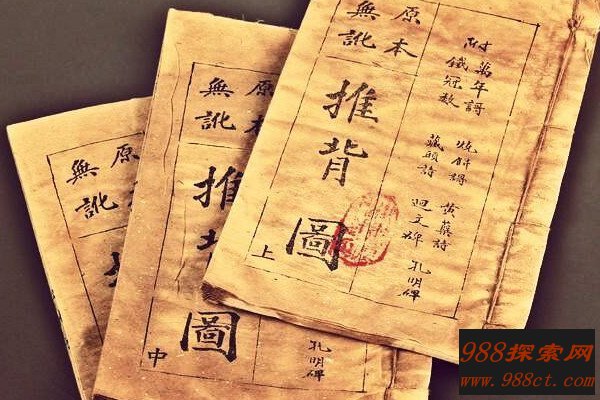 附
萬年謌
鐵冠数
燒餅謌
藏頭詩
黃蘗詩
孔明碑
原本
無訛
推背圖
上
原本
無訛
推
圖
中
孔明碑
原
無訛
988探索网
www.988ct.com